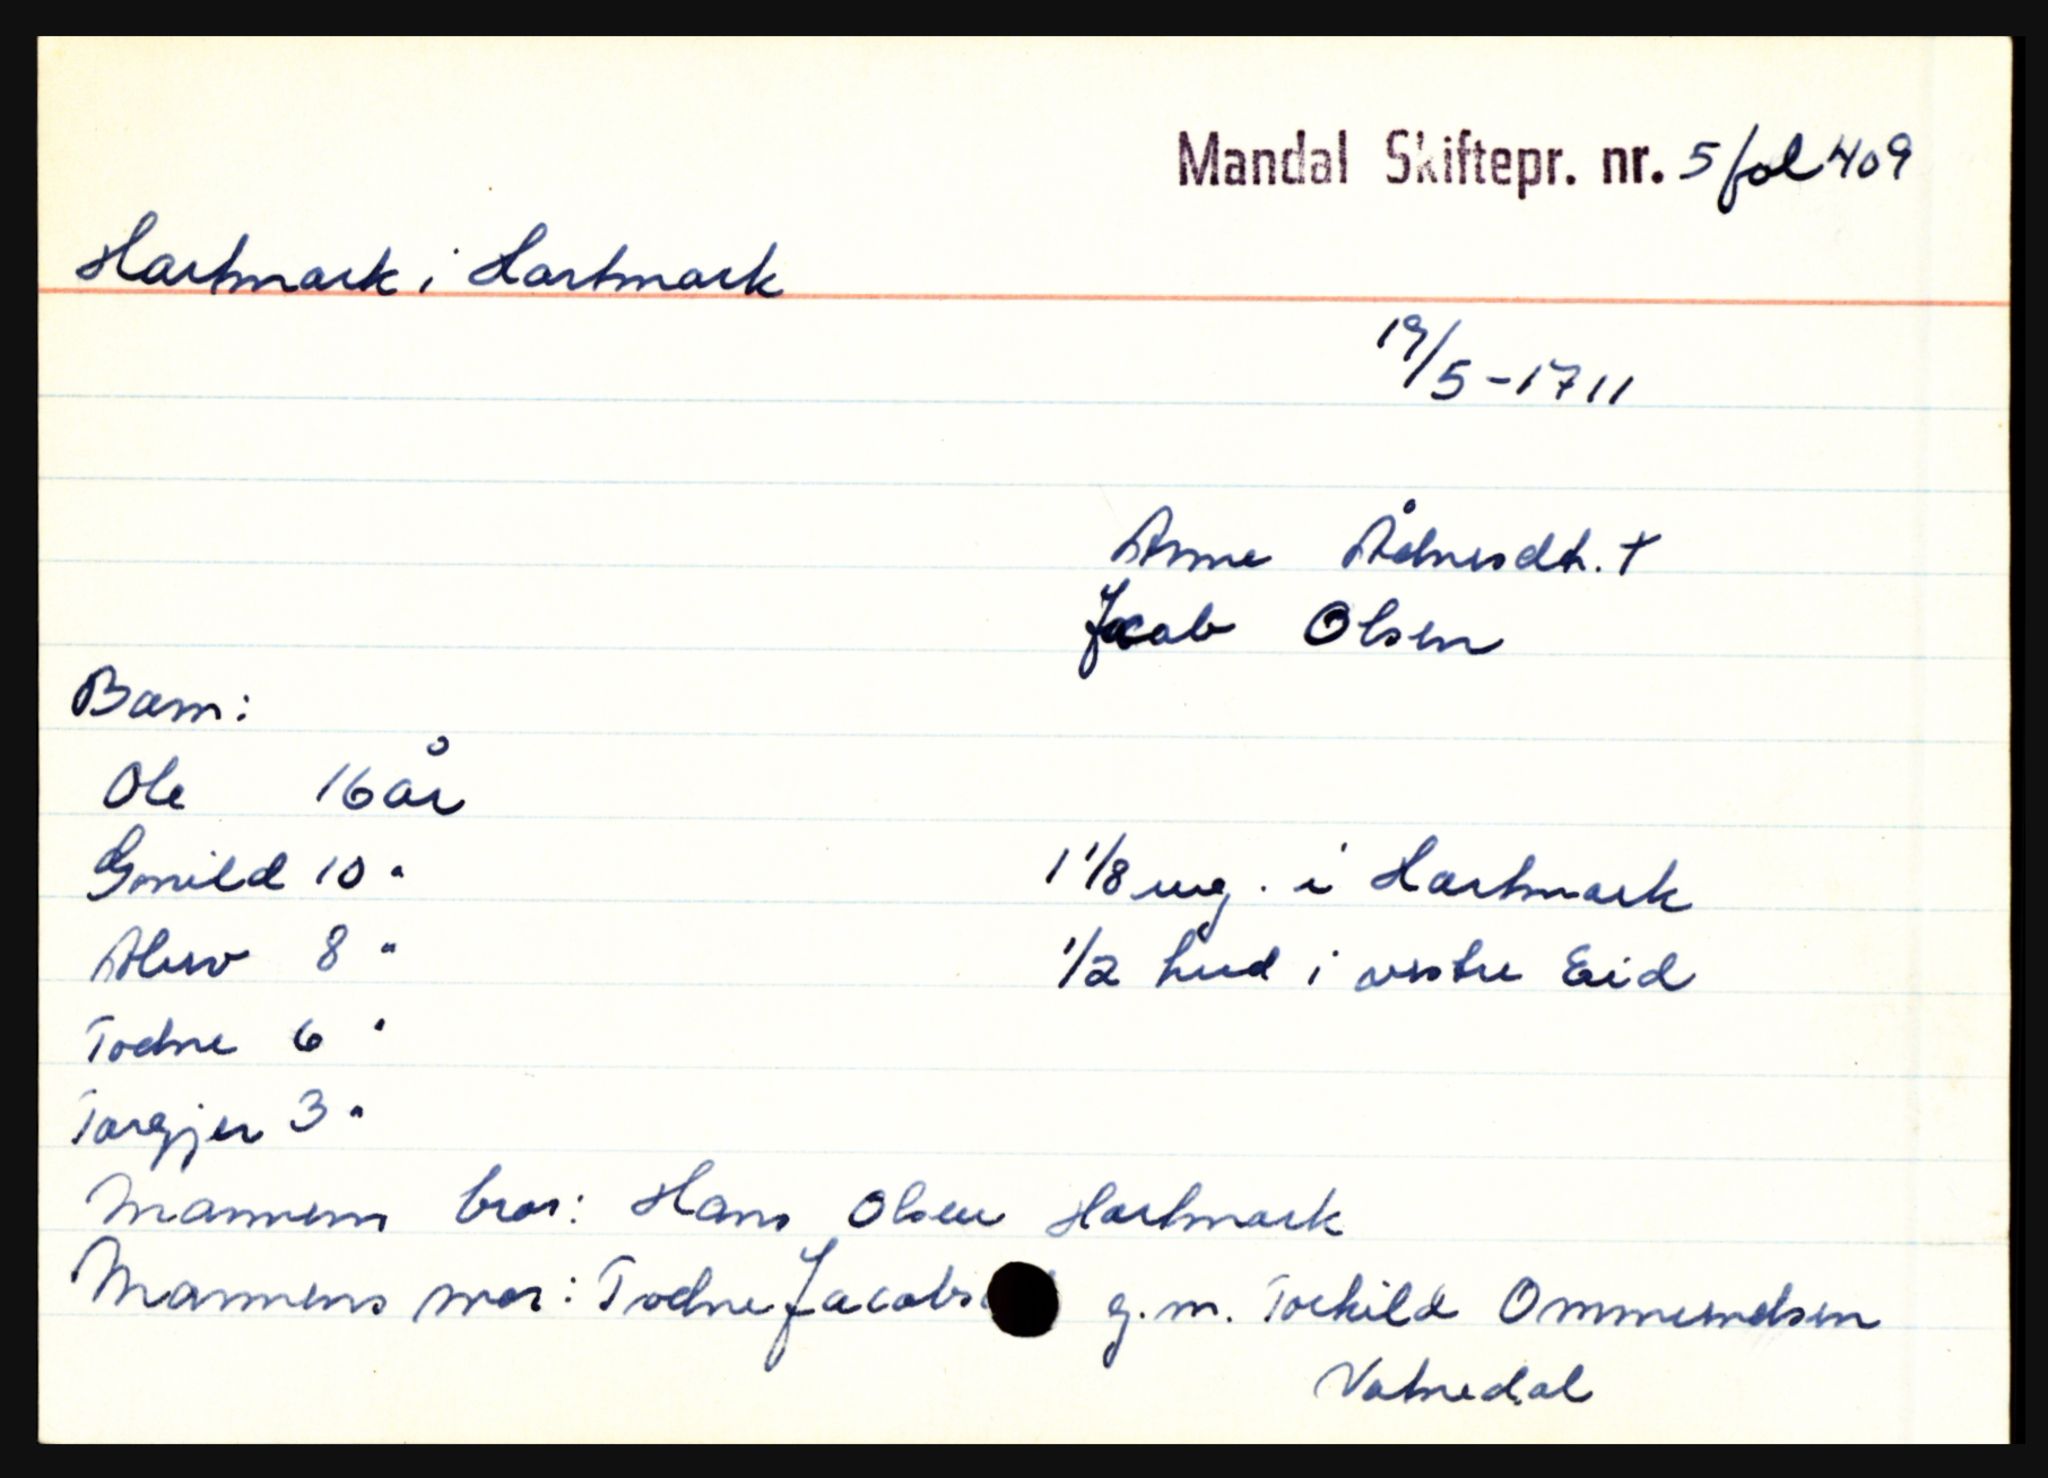 Mandal Skiftepr. nr. 5 fol 409
Hartmark i Hartmark
19/5-1711
Anne Ådnesdt. †
Jacob Olsen
Barn:
Ole 16 år
Gonild 10 "
1 1/8 eng. i Hartmark
Alesv 8 "
1/2 hud i vestre Eid
Todne 6 "
Targjer 3 "
Mannens bror: Hans Olsen Hartmark
Mannens mor: Todne Jacobs g.m. Torkild Ommundsen
Vatnedal